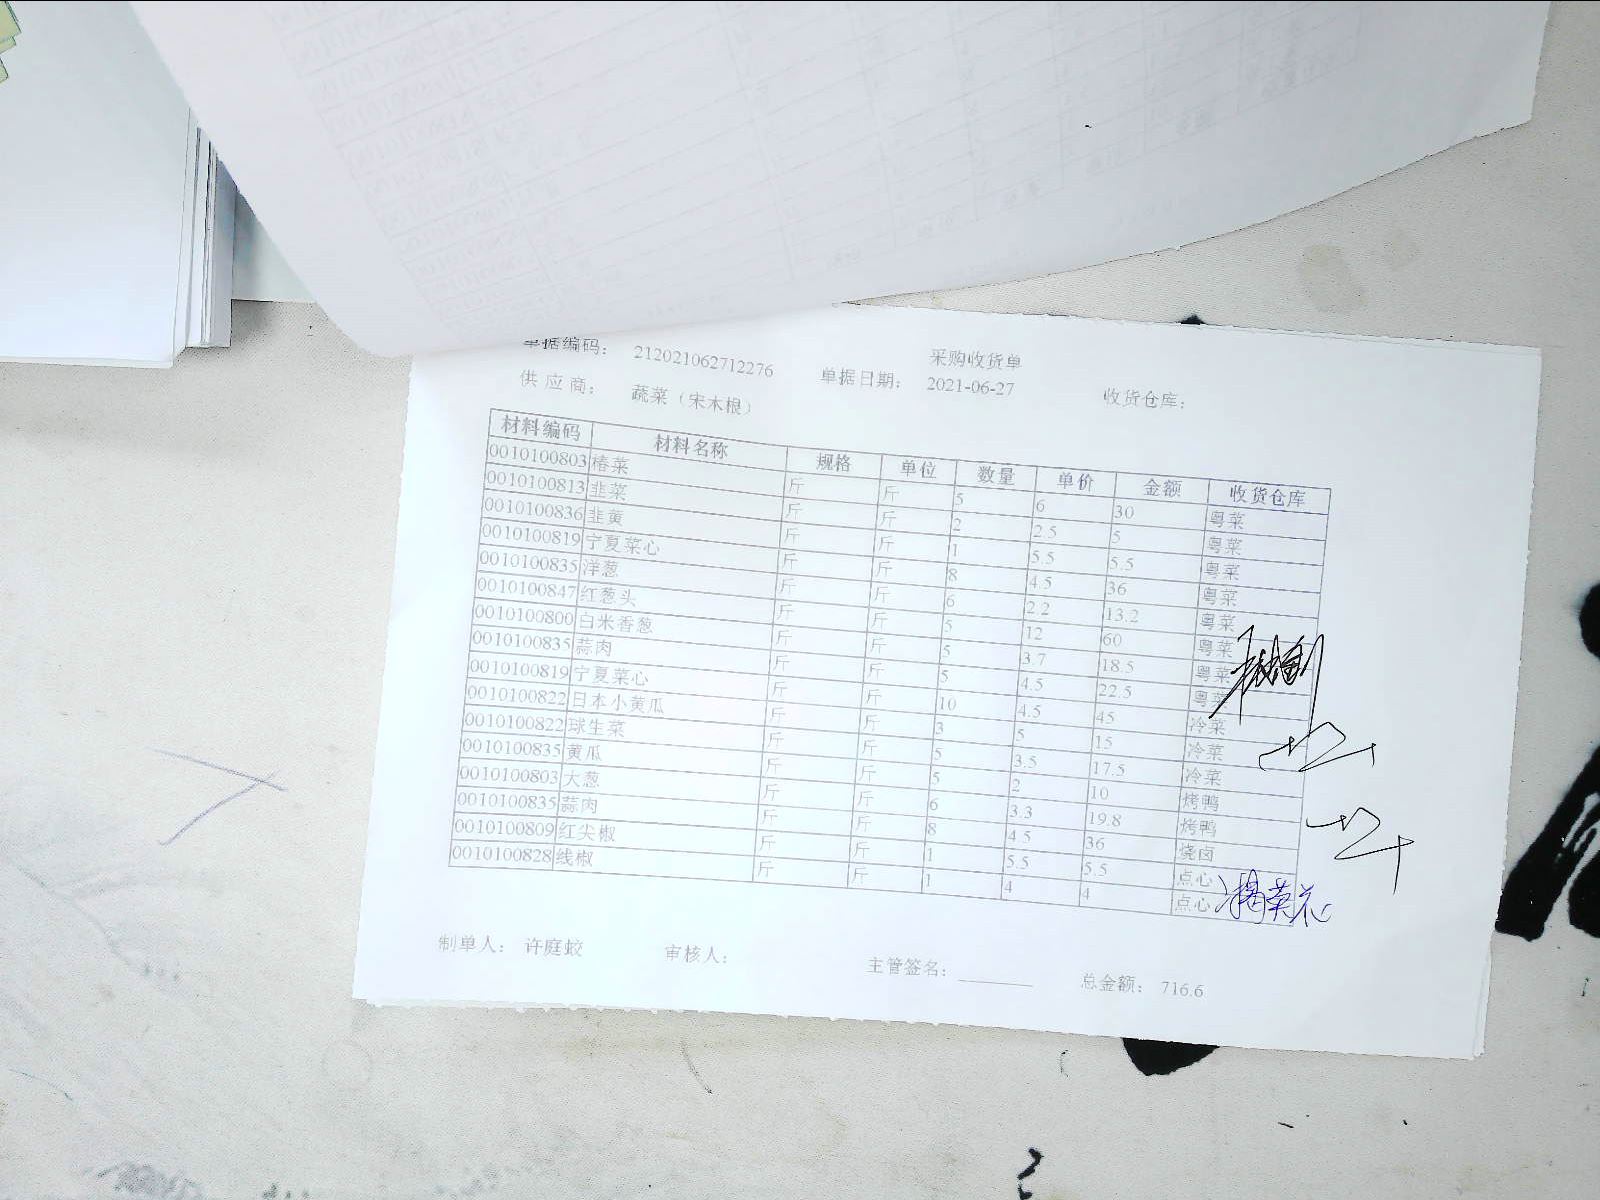 采购收货单
单据编码： 212021062712276 单据日期： 2021-06-27 收货仓库：
供 应 商： 蔬菜（宋木根）
材料编码 材料名称 规格 单位 数量 单价 金额 收货仓库
0010100803 椿菜 斤 斤 5 6 30 粤菜
0010100813 韭菜 斤 斤 2 2.5 5 粤菜
0010100836 韭黄 斤 斤 1 5.5 5.5 粤菜
0010100819 宁夏菜心 斤 斤 8 4.5 36 粤菜
0010100835 洋葱 斤 斤 6 2.2 13.2 粤菜
0010100847 红葱头 斤 斤 5 12 60 粤菜
0010100800 白米香葱 斤 斤 5 3.7 18.5 粤菜
0010100835 蒜肉 斤 斤 5 4.5 22.5 粤菜
0010100819 宁夏菜心 斤 斤 10 4.5 45 冷菜
0010100822 日本小黄瓜 斤 斤 3 5 15 冷菜
0010100822 球生菜 斤 斤 5 3.5 17.5 冷菜
0010100835 黄瓜 斤 斤 5 2 10 烤鸭
0010100803 大葱 斤 斤 6 3.3 19.8 烤鸭
0010100835 蒜肉 斤 斤 8 4.5 36 烧卤
0010100809 红尖椒 斤 斤 1 5.5 5.5 点心
0010100828 线椒 斤 斤 1 4 4 点心
制单人： 许庭蛟 审核人： 主管签名： 总金额： 716.6